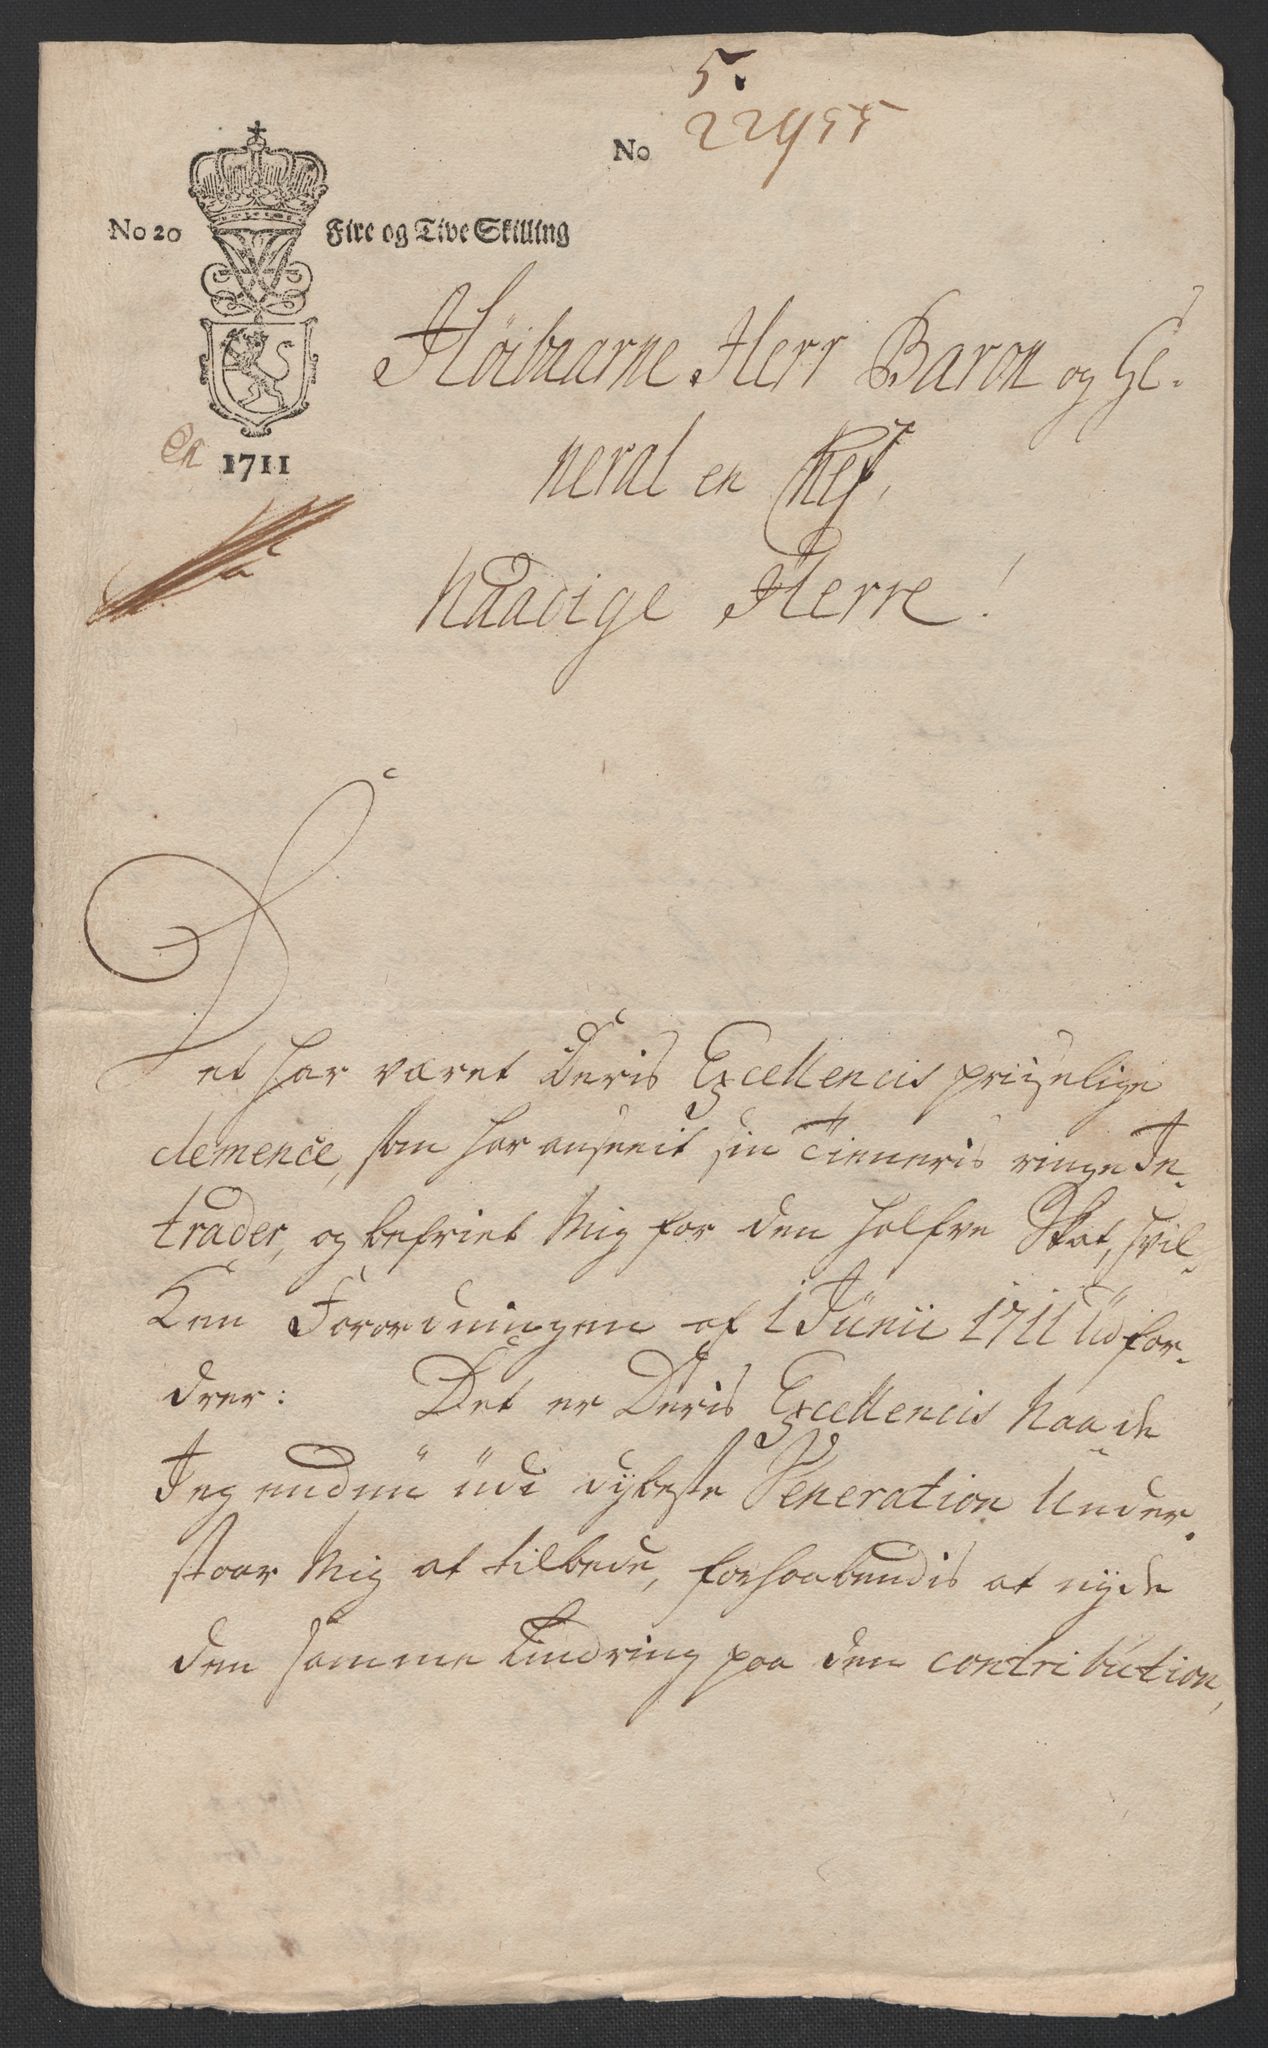 5.
No 22955
No 20 Fire og Tive Skilling
1711
Höibaarne Herr Baron og Ge-
neral en Chef,
Naadige Herre!
Det har været Deris Excellencis prizelige
clemence, som har anseeit sin Tieneris ringe In-
trader, og befriet Mig for den halfve Skat, hvil-
Ken Forordningen af 1 Junii 1711 Udfor-
drer: Det er Deris Excellencis Naade
Jeg endnu udi dybeste Veneration Under
staar Mig at tilbede, forhaabendis at nyde
den samme Lindring paa den contribution,